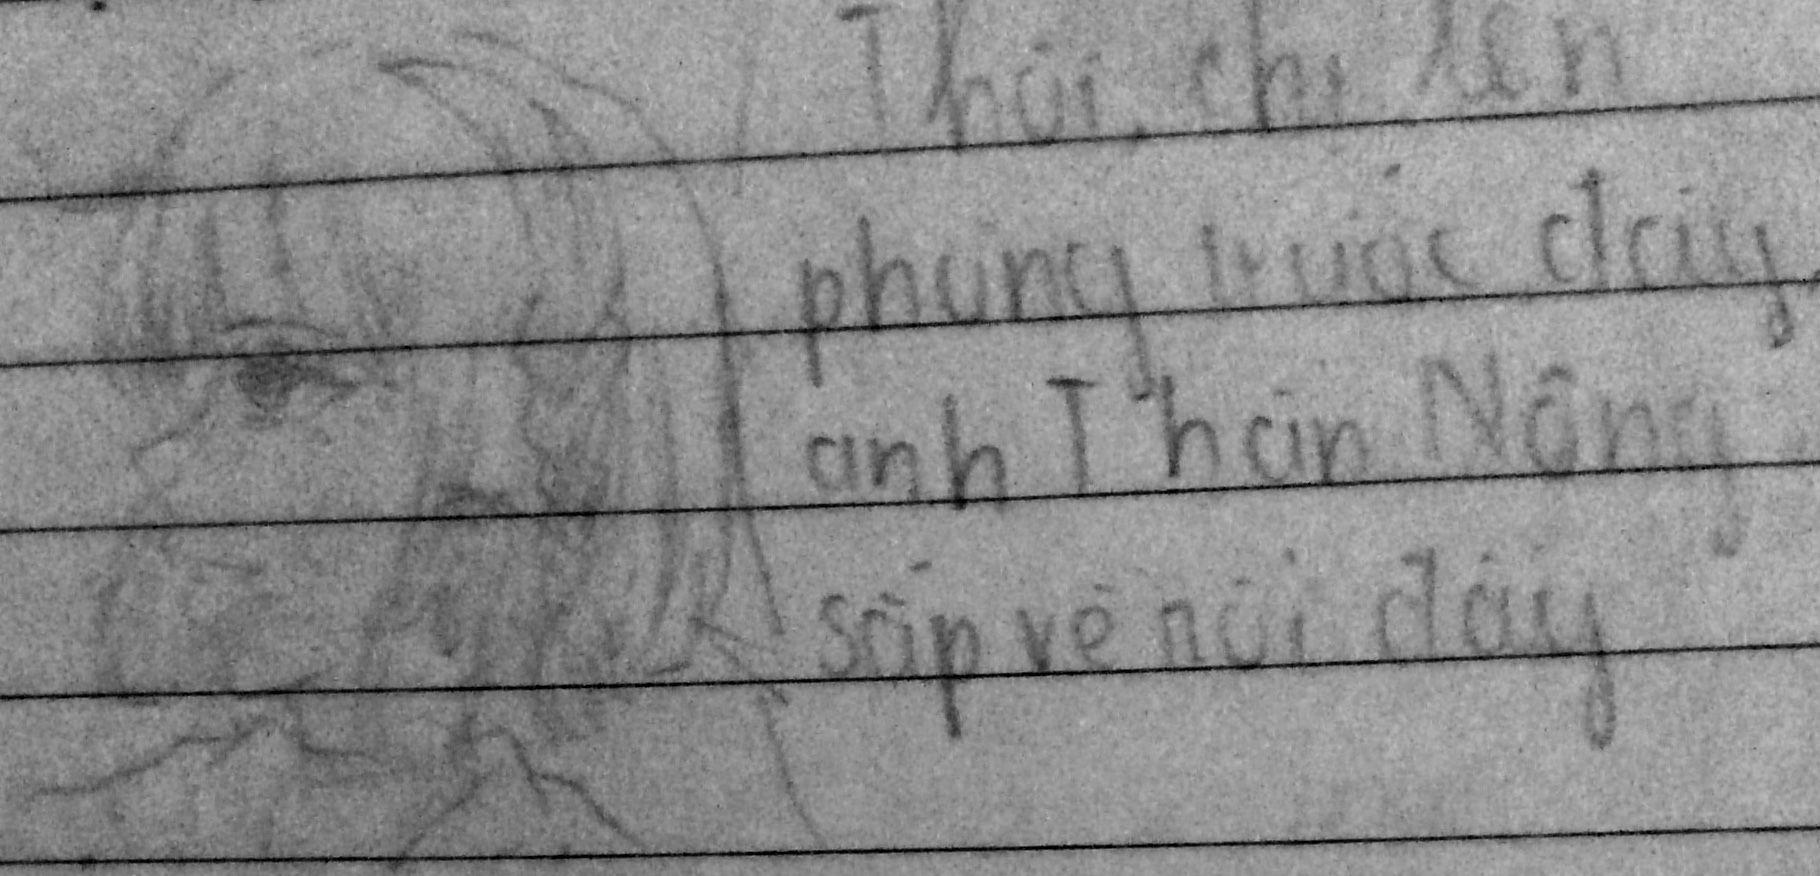 Thôi, chị lên
phòng trước đây,
anh Thần Nông
sắp về rồi đấy